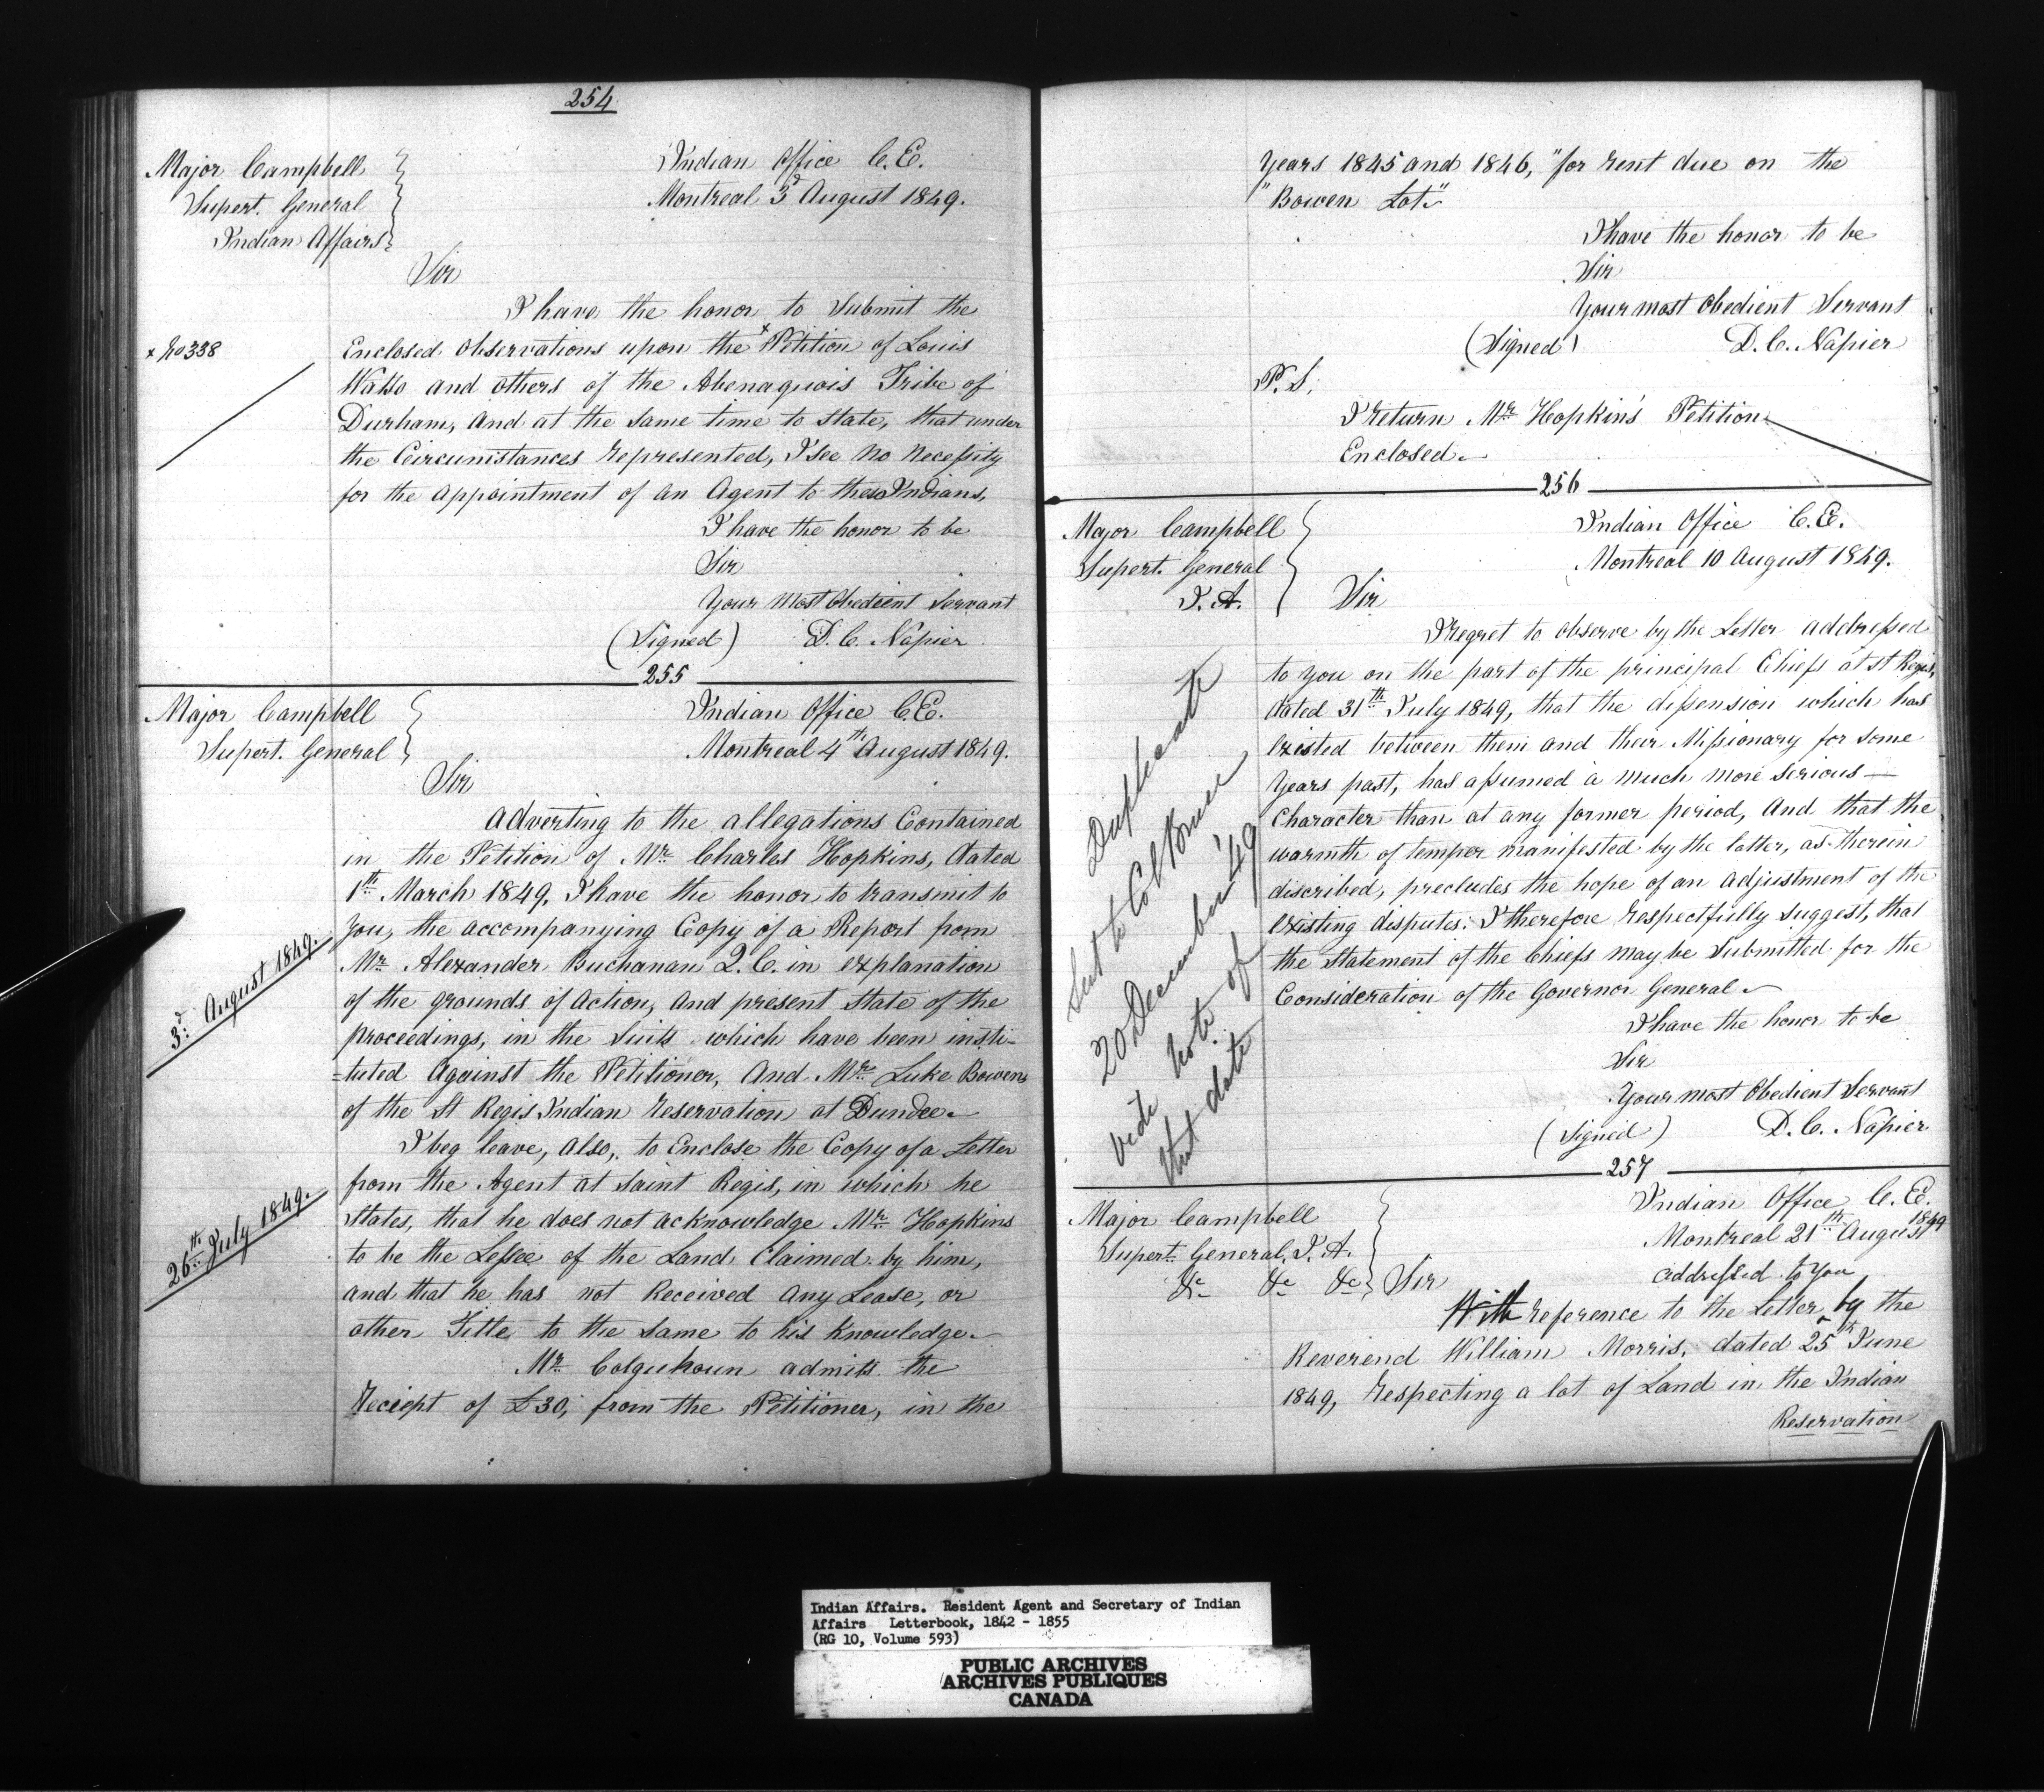 254
Major Campbell
Supert. General
Indian Affairs
Indian Office C.E.
Montreal 3d August 1849.
Sir
I have the honor to Submit the
x No 338
Enclosed Observations upon the x Petition of Louis
Watso and others of the Abenaquois Tribe of
Durham, and at the same time to state, that under
the Circumstances represented, I see no necessity
for the appointment of an Agent to these Indians,
I have the honor to be
Sir
Your Most Obedient Servant
(Signed) D. C. Napier
255
Major Campbell
Supert. General
Indian Office C.E.
Montreal 4th August 1849.
Sir
Adverting to the allegations Contained
in the Petition of Mr Charles Hopkins, dated
1th March 1849, I have the honor to transmit to
3d August 1849.
you, the accompanying Copy of a Report from
Mr Alexander Buchanan Q.C. in explanation
of the grounds of Action, and present state of the
proceedings, in the Suits which have been insti-
=tuted Against the Petitioner, And Mr Luke Bowens
of the St Regis Indian reservation at Dundee.
I beg leave, also, to Enclose the Copy of a Letter
26th July 1849.
from the Agent at Saint Regis, in which he
States, that he does not acknowledge Mr Hopkins
to be the Lessee of the Land Claimed by him,
and that he has not Received any Lease, or
other Title to the same to his knowledge.
Mr Colquhoun admits the
Reciept of £30, from the Petitioner, in the
Years 1845 and 1846, "for rent due on the
"Bowen Lot"
I have the honor to be
Sir
Your most Obedient Servant
(Signed) D. C. Napier
P. S.
I return Mr Hopkin's Petition
Enclosed.
256
Major Campbell
Supert. General
I. A.
Indian Office C.E.
Montreal 10 August 1849.
Sir
I regret to observe by the Letter addressed
to you on the part of the principal Chiefs at St Regis,
dated 31th July 1849, that the dissension which has
existed between them and their Missionary for some
Years past, has assumed a much more serious —
Character than at any former period, and that the
warmth of temper manifested by the latter, as therein
discribed, precludes the hope of an adjustment of the
existing disputes: I therefore respectfully suggest, that
the statement of the Chiefs may be Submitted for the
Consideration of the Governor General.
Duplicate
Sent to Col Bruce
20 December '49
vide note of
that date
I have the honor to be
Sir
Your most Obedient Servant
(Signed) D. C. Napier
257
Major Campbell
Supert General, I. A.
&c &c &c
Indian Office C. E.
Montreal 21th August 1849
Sir
addressed to you
With reference to the Letter by the
Reverend William Morris, dated 25th June
1849, respecting a lot of Land in the Indian
Reservation
Indian Affairs. Resident Agent and Secretary of Indian
Affairs Letterbook, 1842 - 1855
(RG 10, Volume 593)
PUBLIC ARCHIVES
ARCHIVES PUBLIQUES
CANADA